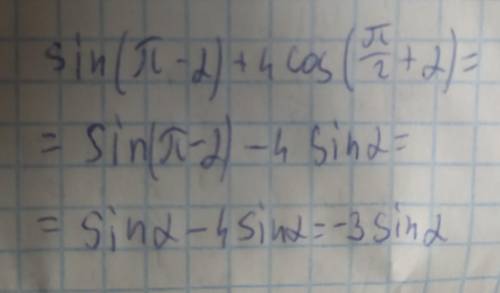 sin(π-α)+4cos(π/2+α)=
= sin(π-α)-4 sinα=
= sinα-4sinα=-3sinα